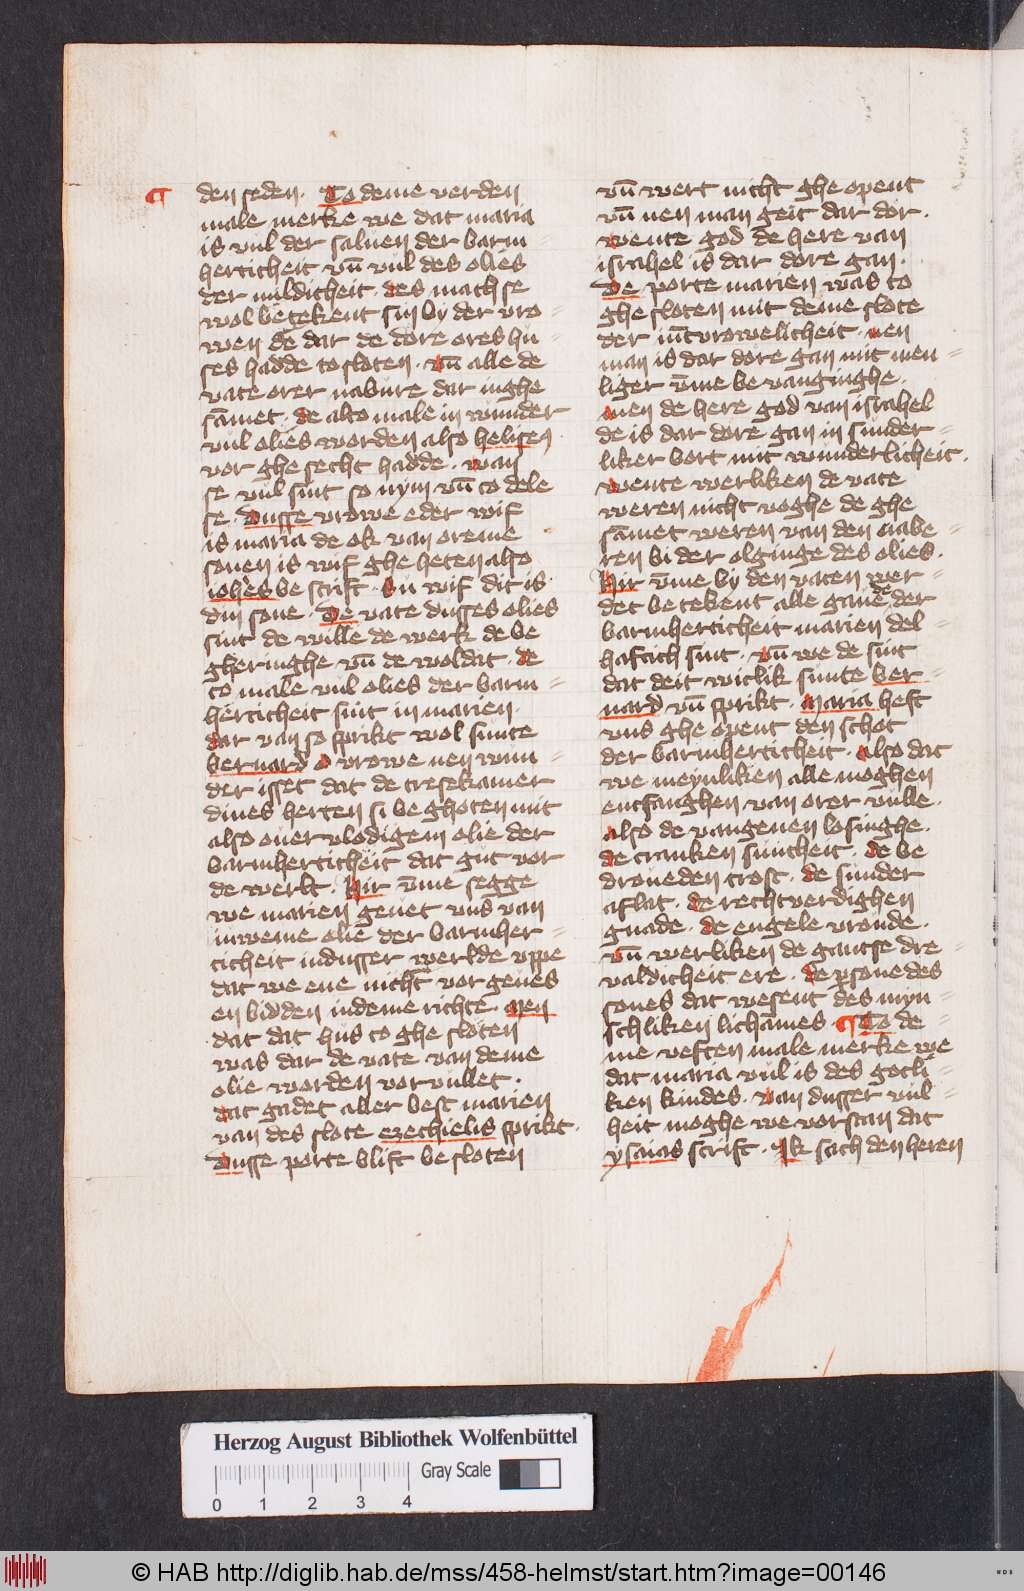 ¶ den seden. To deme verden
male merke we dat maria
is vul der saluen der barm=
herticheit vn̄ vul des olies
der mildicheit. des mach se
wol betekent sin by der vro=
wen de dar de dore ores hu=
ses hadde to sloten. vn̄ alle de
vate orer nabure dar inghe
sāmet. de alto male in wunder
vul olies worden also helisen
vor ghe secht hadde. wan
se vul sint so nym vn̄ to dele
se. Dusse vrowe eder wif
is maria de ok van oreme
sonen is wif ghe heten also
iohēs be scrift. Su wif dit is
din sone. De vate dusses olies
sint de wille de werk de be
gheringhe vn̄ de woldat. de
to male vul olies der barm=
herticheit sint in marien.
dar van so sprikt wol sunte
bernard o vrowe nen wun=
der isset dat de tresekamer
dines herten si be ghoten mit
also ouervlodigem olie der
barmherticheit dat gut vor
de werlt. Hir v̄me segge
we marien geuet vns van
iuweme olie der barmher=
ticheit in dusser werlde vppe
dat we ene nicht vorgeues
en bidden in deme richte. Men
dat dat hus to ghe sloten
was dar de vate van deme
olie worden vorvullet.
dat gadet aller best marien
van des slote ezechielis sprikt.
Dusse porte blift be sloten
vn̄ wert nicht ghe opent
vn̄ nen man geit dar dor.
wente god de here van
israhel is dar dore gan.
De porte marien was to
ghe sloten mit deme slote
der iūcvrowelicheit. nen
man is dar dore gan mit men=
liger v̄me be vanginghe.
men de here god van israhel
de is dar dore gan in sunder=
liker bort mit wunderlicheit.
wente werliken de vate
weren nicht voghe de ghe
sāmet weren van den nabe
ren bi der olginge des olies.
Hir v̄me by den vaten wer=
det be tekent alle gaue de der
barmherticheit marien del=
haftich sint. vn̄ we de sint
dat deit witlik sunte ber=
nard vn̄ sprikt. Maria heft
vns ghe opent den schot
der barmherticheit. also dat
we meynliken alle moghen
entfanghen van orer vulle.
also de vangenen losinghe.
de cranken suntheit. de be
droueden trost. de sunder
aflat. de rechtverdighen
gnade. de engele vronde.
vn̄ werliken de gantse dre=
valdicheit ere. de psone des
sones dat wesent des myn=
schliken lichāmes. ¶ To de
me veften male merke we
dat maria vul is des gotli=
ken kindes. van dusser vul=
heit moghe we vorstan dat
ysaias scrift. Ik sach den heren
Herzog August Bibliothek Wolfenbüttel
Gray Scale
0 1 2 3 4
© HAB http://diglib.hab.de/mss/458-helmst/start.htm?image=00146